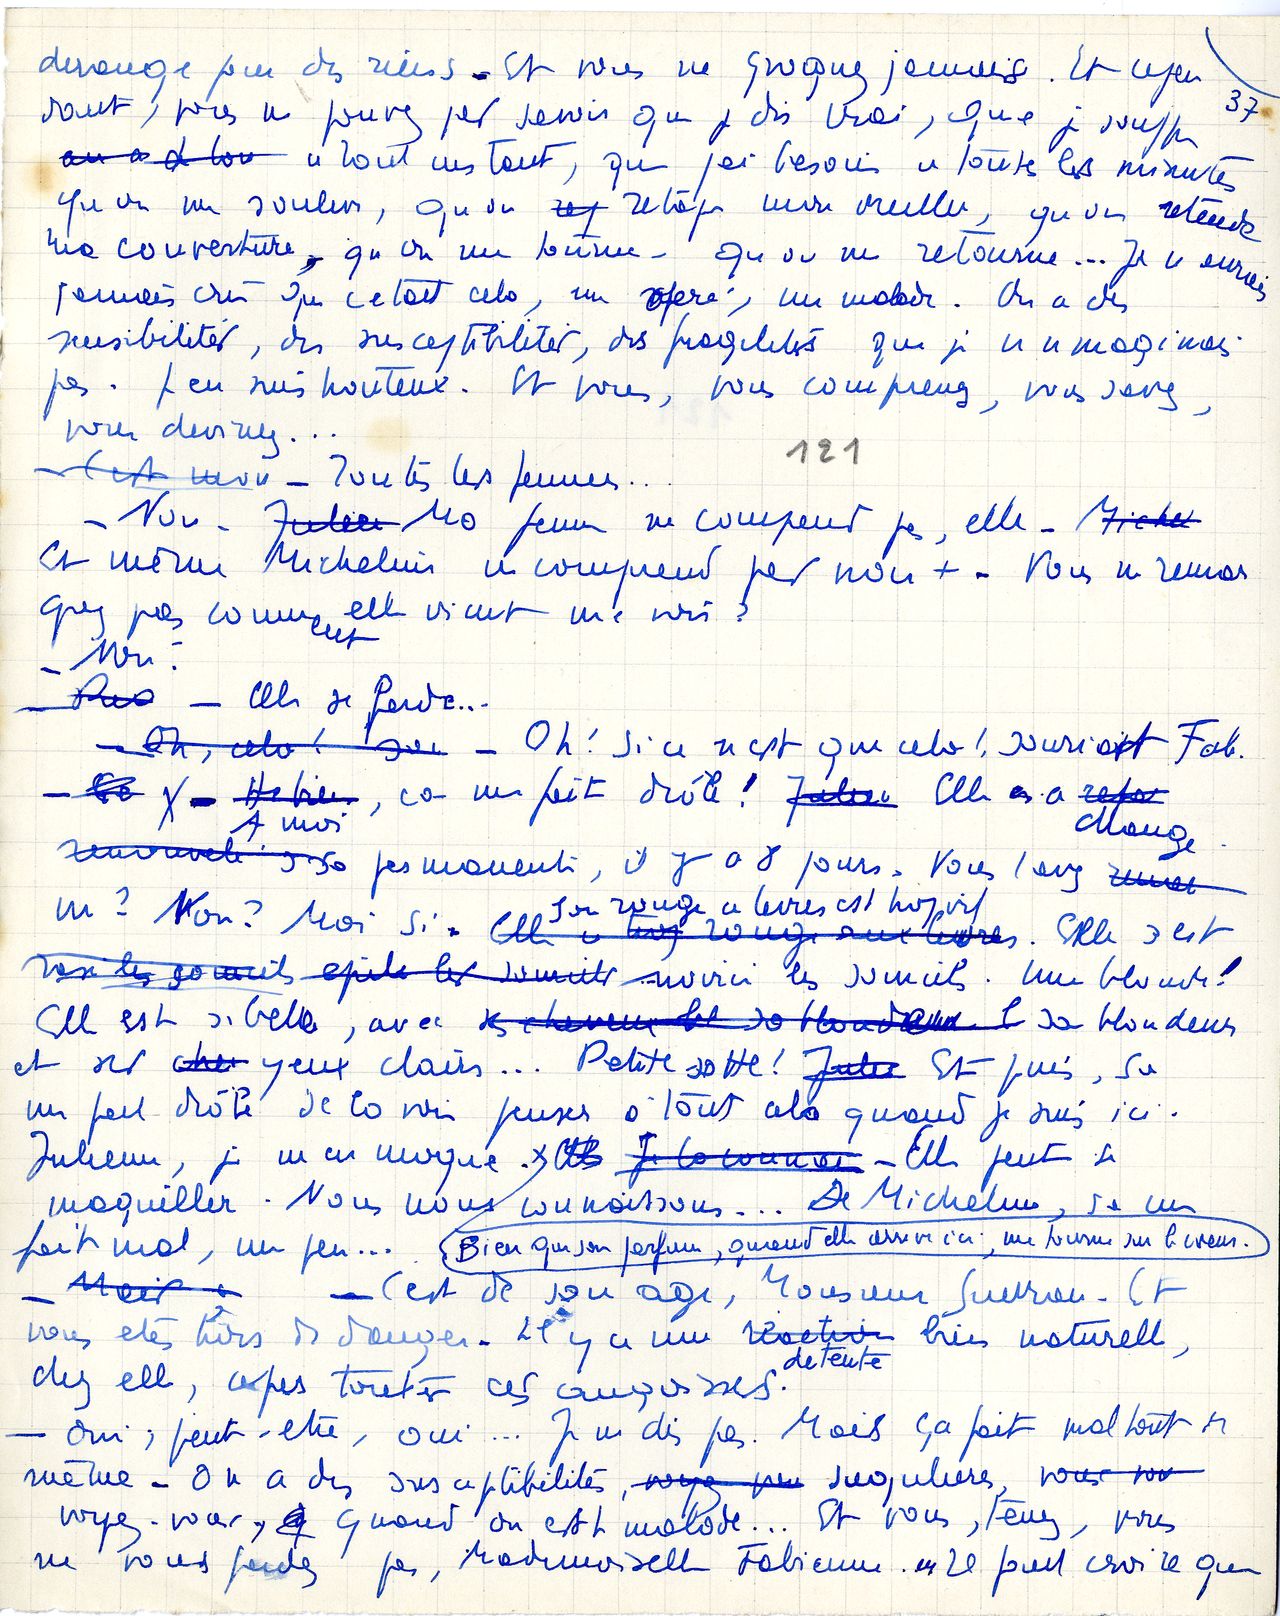 37
dérange pour des riens - Et vous ne grognez jamais. Et cepen
dant, vous ne pouvez pas savoir que je dis vrai, que je souffre
à tout instant, que j'ai besoin à toutes les minutes
qu'on me soulève, qu'on retape mon oreiller, qu'on retende
ma couverture, qu'on me tourne - qu'on me retourne... Je n'aurais
jamais cru que c'était cela, un opéré, un malade. On a des
sensibilités, des susceptibilités, des fragilités que je n'imaginais
pas. J'en suis honteux. Et vous, vous comprenez, vous savez,
vous devinez...
121
- C'est mon - Toutes les femmes...
- Non - Julien Ma femme ne comprend pas, elle - Michel
Et même Micheline ne comprend pas non + - Vous ne remar
quez pas comment elle vient me voir ?
- Non ?
- Elle se farde...
- Oh, cela ! - Oh ! Si ce n'est que cela !, souriait Fab.
- A moi, ça me fait drôle ! Julien Elle a change
renouvelé sa permanente, il y a 8 jours. Vous l'avez
vu ? Non ? Moi si - Son rouge à lèvres est trop vif
Elle a trop rouge aux lèvres. Elle s'est
rasé les sourcils épilé les sourcils noirci les sourcils. Une blonde !
Elle est si belle, avec ses cheveux bl sa blondeur sa blondeur
et ses yeux clairs... Petite sotte ! Julie Et puis, ça
me fait drôle de la voir penser à tout cela quand je suis ici.
Julienne, je m'en moque. Je la connais - Elle peut se
maquiller. Nous nous connaissons... De Micheline, ça me
fait mal, un peu... Bien que son parfum, quand elle arrive ici, me tourne sur le cœur.
- C'est de son âge, Monsieur Guerran - Et
vous êtes hors de danger - Il y a une réaction détente bien naturelle,
chez elle, après toutes ces angoisses.
- Oui, peut-être, oui... Je ne dis pas. Mais ça fait mal tout de
même - On a des susceptibilités, singulières,
voyez-vous, quand on est malade... Et vous, tenez, vous
ne vous fardez pas, Mademoiselle Fabienne. peut croire que